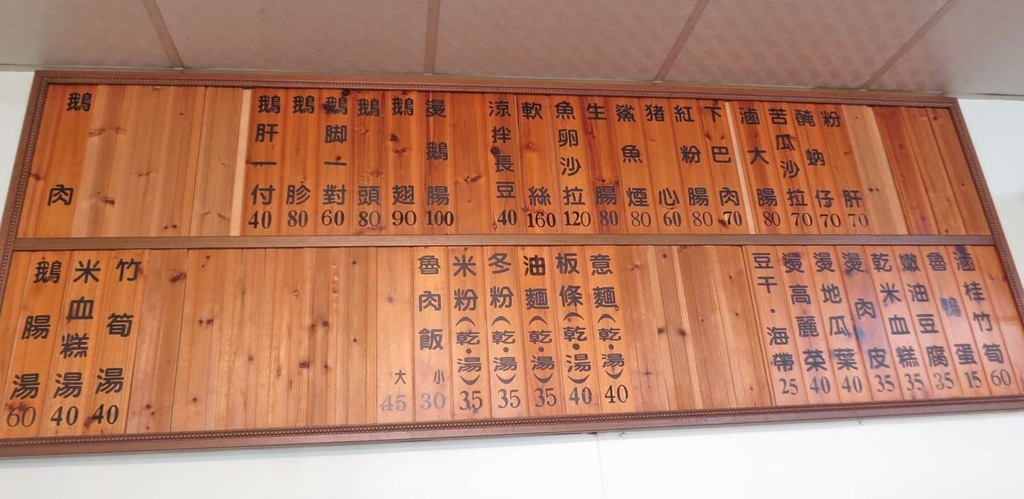 鵝肉
鵝肝一付 40
鵝胗 80
鵝脚一對 60
鵝頭 80
鵝翅 90
燙鵝腸 100
涼拌長豆 40
軟絲 160
魚卵沙拉 120
生腸 80
鯊魚煙 80
猪心 60
紅粉腸 80
下巴肉 70
滷大腸 80
苦瓜沙拉 70
醃蚋仔 70
粉肝 70
鵝腸湯 60
米血糕湯 40
竹筍湯 40
魯肉飯 大 45 小 30
米粉(乾·湯) 35
冬粉(乾·湯) 35
油麵(乾·湯) 35
板條(乾·湯) 40
意麵(乾·湯) 40
豆干·海帶 25
燙高麗菜 40
燙地瓜葉 40
燙肉皮 35
乾米血糕 35
嫩油豆腐 35
魯鴨蛋 15
滷桂竹筍 60